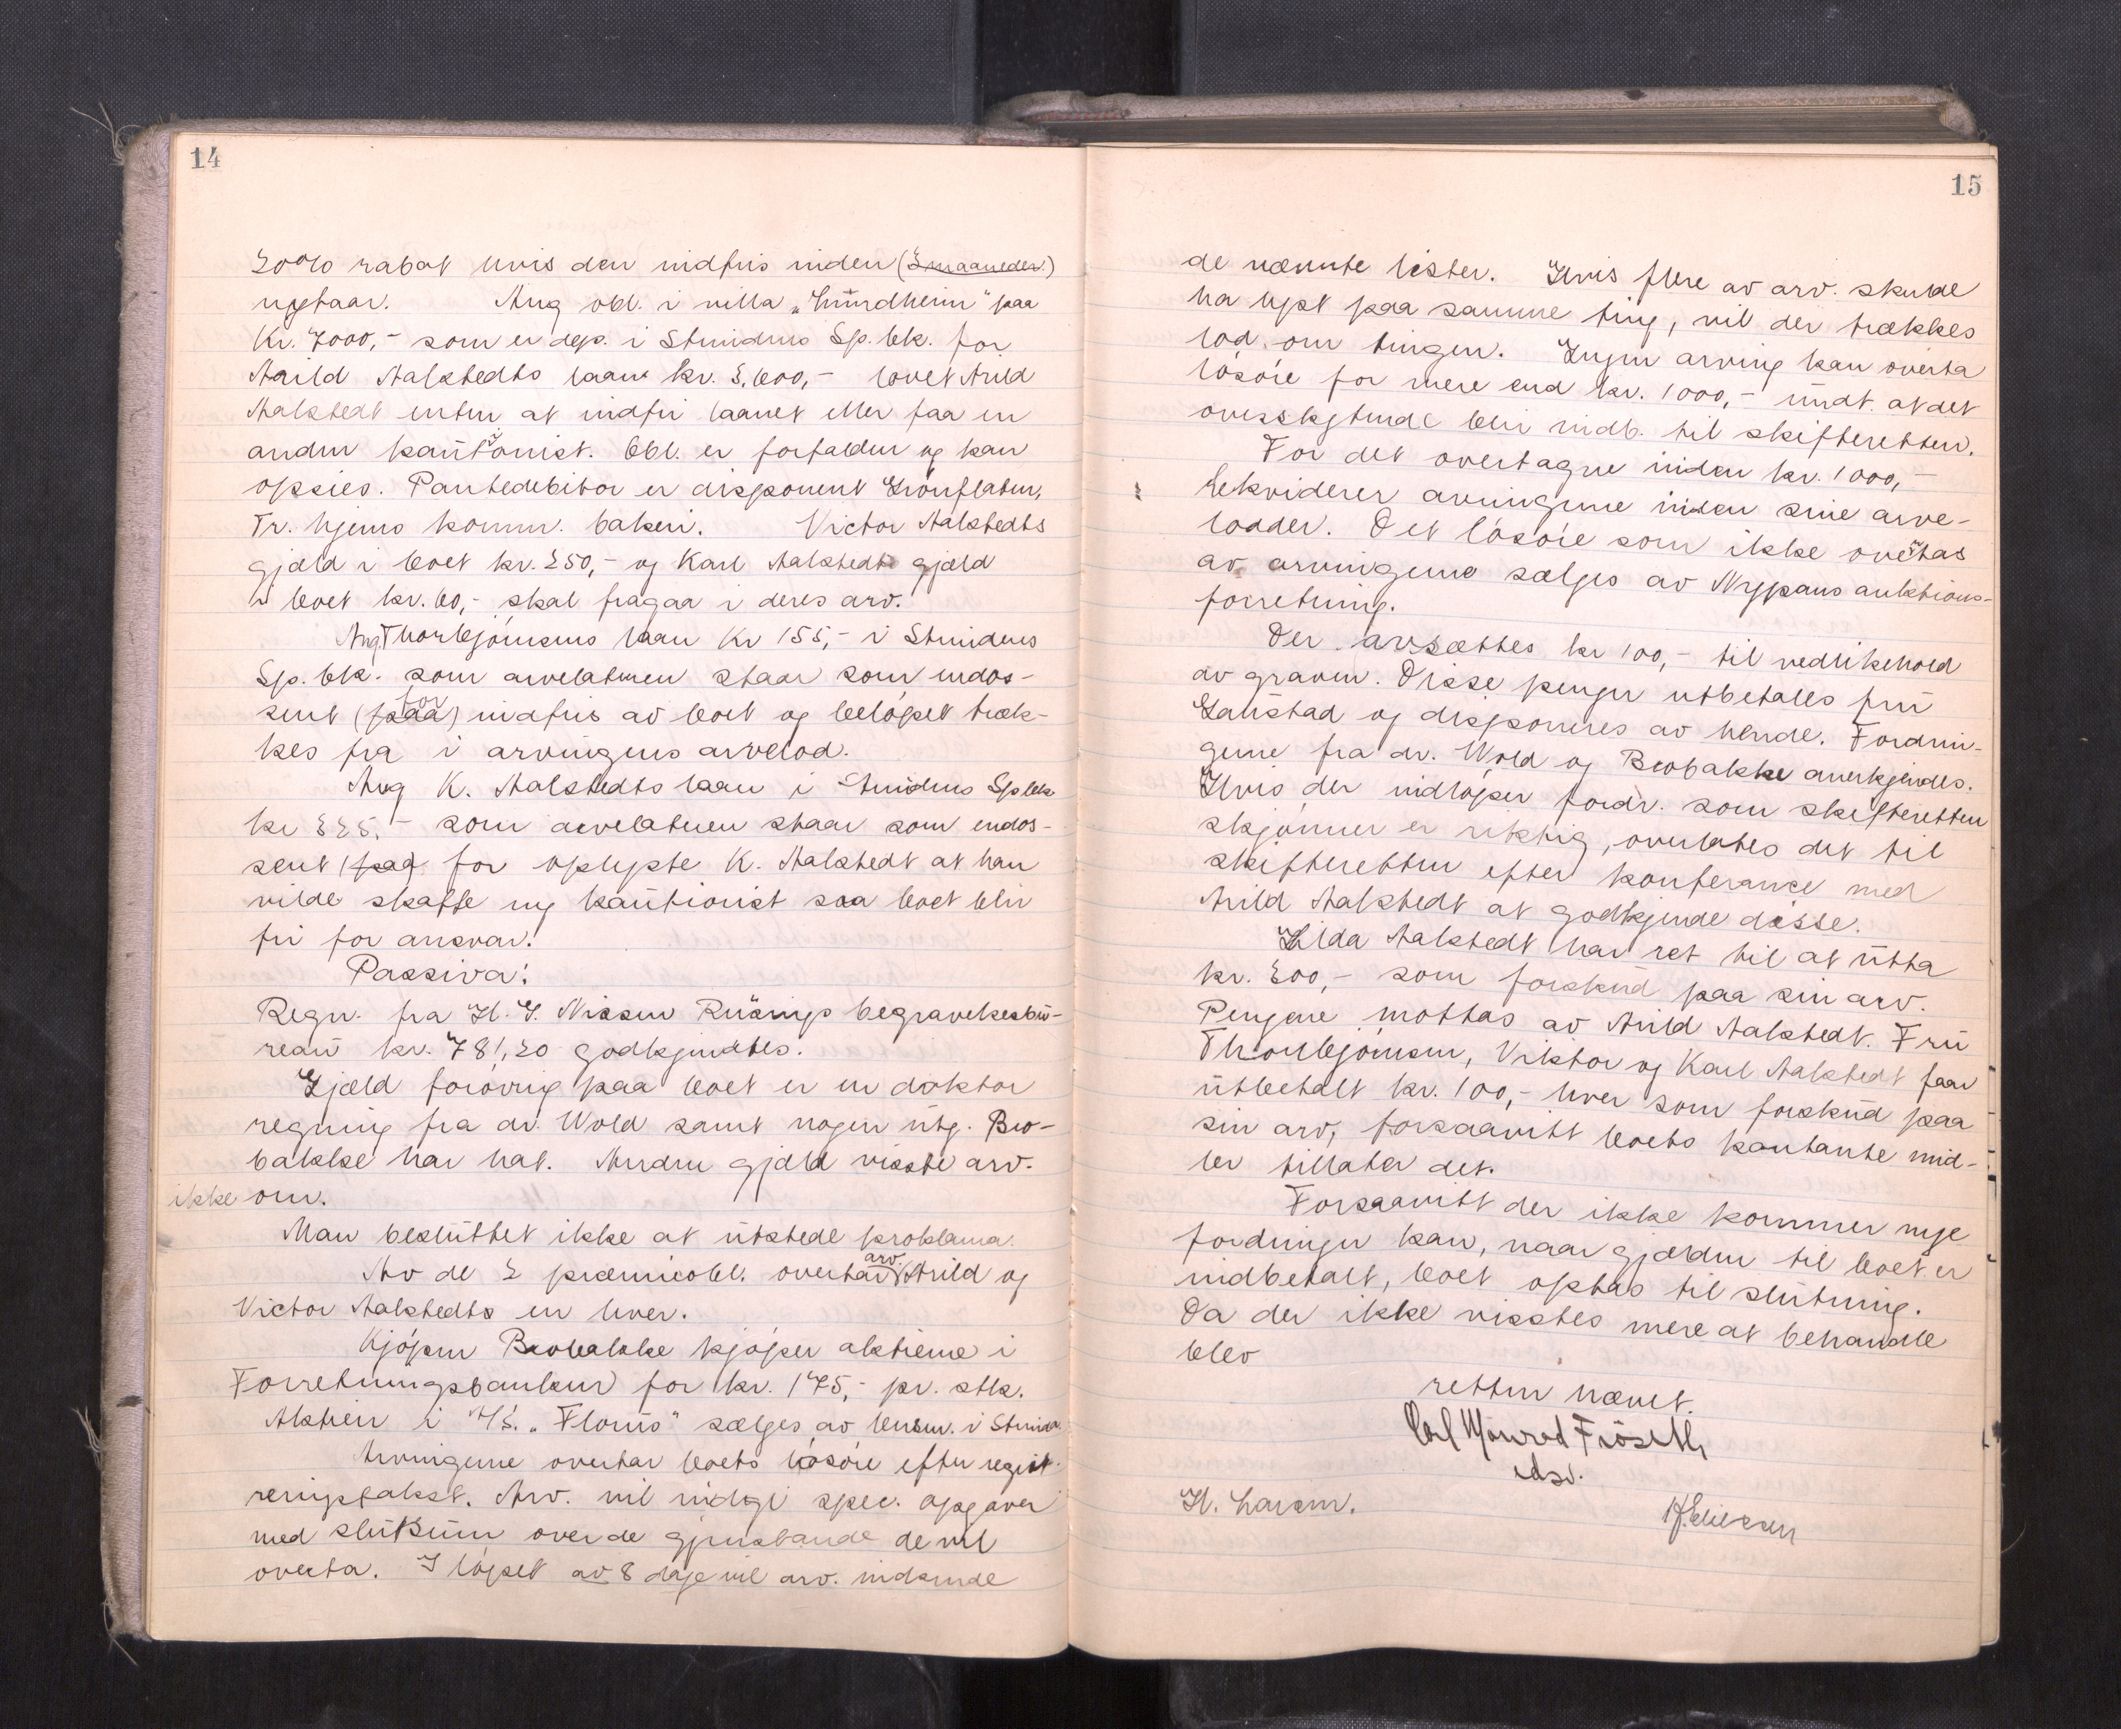 14
20% rabat hvis den indfris inden (2 maaneder.)
nyttaar. Ang obl. i villa „Lundheim" paa
Kr. 7000,- som er dep. i Strindens Sp.bk. for
Arild Aalstedts laan kr. 3.600,- lovet Arild
Aalstedt enten at indfri laanet eller faa en
anden kautionist. Obl. er forfalden og kan
opsies. Pantedebitor er disponent Grönflaten,
Tr.hjems komm. bakeri. Victor Aalstedts
gjæld i boet kr. 250,- og Karl Aalstedts gjæld
i boet kr. 60,- skal fragaa i deres arv.
Ang. Thorbjörnsens laan Kr 155,- i Strindens
Sp.bk. som arvelateren staar som endos-
sent (paa) for indfris av boet og belöpet træk-
kes fra i arvingens arvelod.
Ang K. Aalstedts laan i Strindens Spbk
kr 325,- som arvelateren staar som endos-
sent (paa) for oplyste K. Aalstedt at han
vilde skaffe ny kautionist saa boet blir
fri for ansvar.
Passiva:
Regn. fra H. J. Nissen Rüsings begravelsesbü-
reau kr. 781,20 godkjendtes.
Gjæld forövrig paa boet er en doktor
regning fra dr. Wold samt nogen utg. Bro-
bakke har hat. Anden gjæld visste arv.
ikke om.
Man besluttet ikke at utstede proklama.
Av de 2 premieobl. overtar arv. Arild og
Victor Aalstedts en hver.
Kjöpm Brobakke kjöper aktierne i
Forretningsbanken for kr. 175,- pr. stk.
Aktien i A/S. „Florus" sælges av lensm. i Strinda.
Arvingerne overtar boets lösöre efter regist-
reringstakst. Arv. vil indgi spec. opgaver
med slutsum over de gjenstande de vil
overta. I löpet av 8 dage vil arv. indsende
15
de nævnte lister. Hvis flere av arv. skulde
ha lyst paa samme ting, vil der trækkes
lod om tingen. Ingen arving kan overta
lösöre for mere end kr. 1000,- undt. at det
overskytende blir indb. til skifteretten.
For det overtagne inden kr. 1000,-
lekviderer arvingerne inden sine arve-
lodder. Det lösöre som ikke overtas
av arvingerne sælges av Nypans auktions-
forretning.
Der avsættes kr 100,- til vedlikehold
av graven. Disse penger utbetales fru
Gaustad og disponeres av hende. Fordrin-
gene fra dr. Wold og Brobakke anerkjendes.
Hvis der indlöper fordr. som skifteretten
skjönner er riktig, overlates det til
skifteretten efter konferanse med
Arild Aalstedt at godkjende disse.
Hilda Aalstedt har ret til at utta
kr. 300,- som forskud paa sin arv.
Pengene mottas av Arild Aalstedt. Fru
Thorbjörnsen, Viktor og Karl Aalstedt faar
utbetalt kr. 100,- hver som forskud paa
sin arv, forsaavitt boets kontante mid-
ler tillater det.
Forsaavitt der ikke kommer nye
fordringer kan, naar gjælden til boet er
indbetalt, boet optas til slutning.
Da der ikke visstes mere at behandle
blev
retten hævet.
Carl Monrad Fröseth
edsv.
H. Larsen.